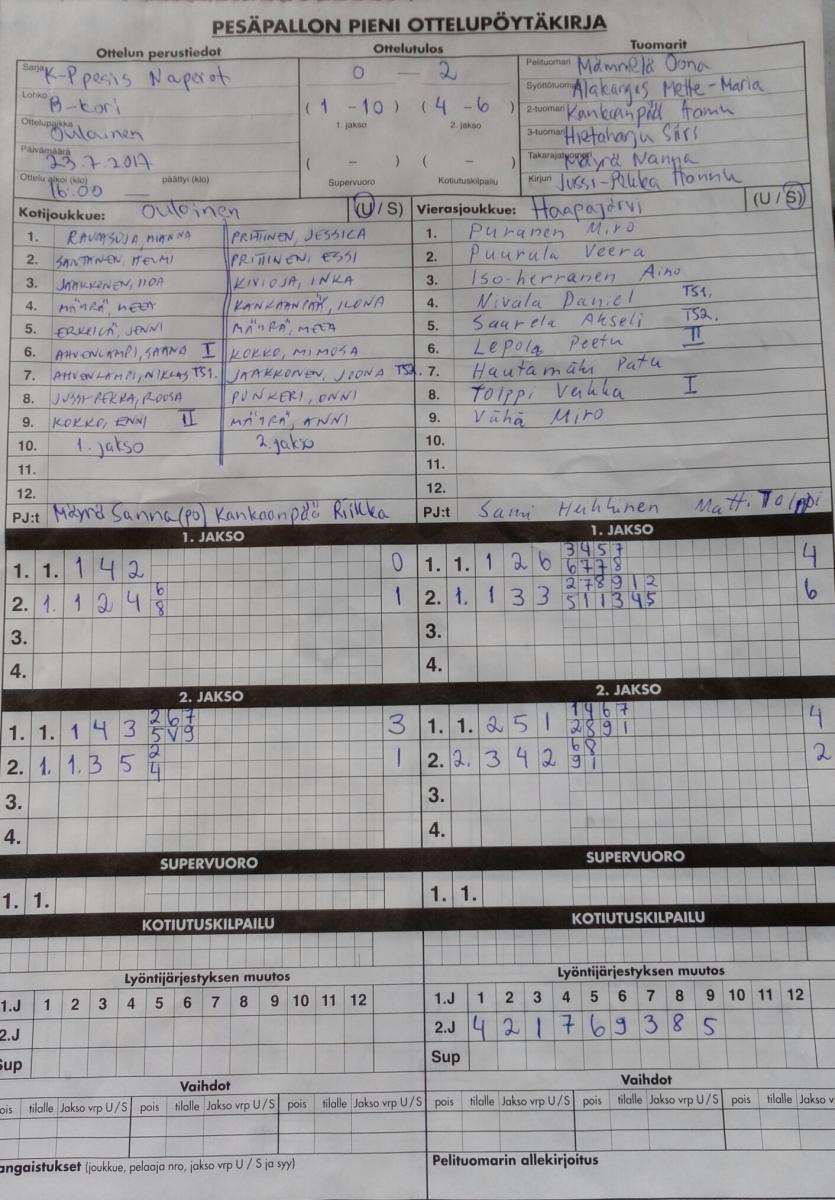 PESÄPALLON PIENI OTTELUPÖYTÄKIRJA
Ottelun perustiedot Ottelutulos Tuomarit
Sarja K-P pesis Naperot
Lohko B-kori
Ottelupaikka Oulainen
Päivämäärä 23.7.2017
Ottelu alkoi (klo) 16.00 — päättyi (klo)
0 — 2
(1 - 10) (4 - 6)
1. jakso 2. jakso
( - ) ( - )
Supervuoro Kotiutuskilpailu
Pelituomari Oona
Syöttötuomari Alakangas Mette-Maria
2-tuomari Kankaanpää
3-tuomari Hietaharju Siiri
Takarajatuomari Märä Nanna
Kirjuri Jussi-Pekka Hannu
Kotijoukkue: Oulainen (U / S)
1. RAUMASOJA, MIANNA PRITTINEN, JESSICA
2. SANTANEN, HELMI PRITTINEN, ESSI
3. JAAKKONEN, IIDA KIVIOJA, INKA
4. MÄYRÄ, KANKAANPÄÄ, ILONA
5. ERKKILÄ, JENNI MÄYRÄ, META
6. AHVENLAMPI, SAANA I KOKKO, MIMOSA
7. AHVENLAMPI, NIKLAS TS1. JAAKKONEN, JOONA TS2.
8. JUSSI-PEKKA, ROOSA PUNKERI, ONNI
9. KOKKO, ENNI II MÄYRÄ, ANNI
10. 1. jakso 2. jakso
11.
12.
PJ:t Mäyrä Sanna (po) Kankaanpää Riikka
Vierasjoukkue: Haapajärvi (U / S)
1. Puranen Miro
2. Puurula Veera
3. Iso-herranen Aino
4. Nivala Daniel TS1.
5. Saarela Akseli TS2.
6. Lepola Peetu II
7. Hautamäki Patu
8. Tolppi Veikka I
9. Vähä Miro
10.
11.
12.
PJ:t Sami Huhtinen Matti Tolppi
1. JAKSO
1. 1. 1 4 2 0
2. 1. 1 2 4 6 1
8
3.
4.
1. JAKSO
1. 1. 1 2 6 3 4 5 7 4
6 7 7 8
2. 1. 1 3 3 2 7 8 9 1 2 6
5 1 1 3 4 5
3.
4.
2. JAKSO
1. 1. 1 4 3 2 6 7 3
5 V 9
2. 1. 1. 3 5 2 1
4
3.
4.
2. JAKSO
1. 1. 2 5 1 1 4 6 7 4
2 8 9 1
2. 2. 3 4 2 6 8 2
9 1
3.
4.
SUPERVUORO SUPERVUORO
1. 1. 1. 1.
KOTIUTUSKILPAILU KOTIUTUSKILPAILU
Lyöntijärjestyksen muutos
1.J 1 2 3 4 5 6 7 8 9 10 11 12
2.J
Sup
Lyöntijärjestyksen muutos
1.J 1 2 3 4 5 6 7 8 9 10 11 12
2.J 4 2 1 7 6 9 3 8 5
Sup
Vaihdot
ois tilalle Jakso vrp U / S pois tilalle Jakso vrp U / S pois tilalle Jakso vrp U / S
Vaihdot
pois tilalle Jakso vrp U / S pois tilalle Jakso vrp U / S pois tilalle Jakso v
angaistukset (joukkue, pelaaja nro, jakso vrp U / S ja syy)
Pelituomarin allekirjoitus